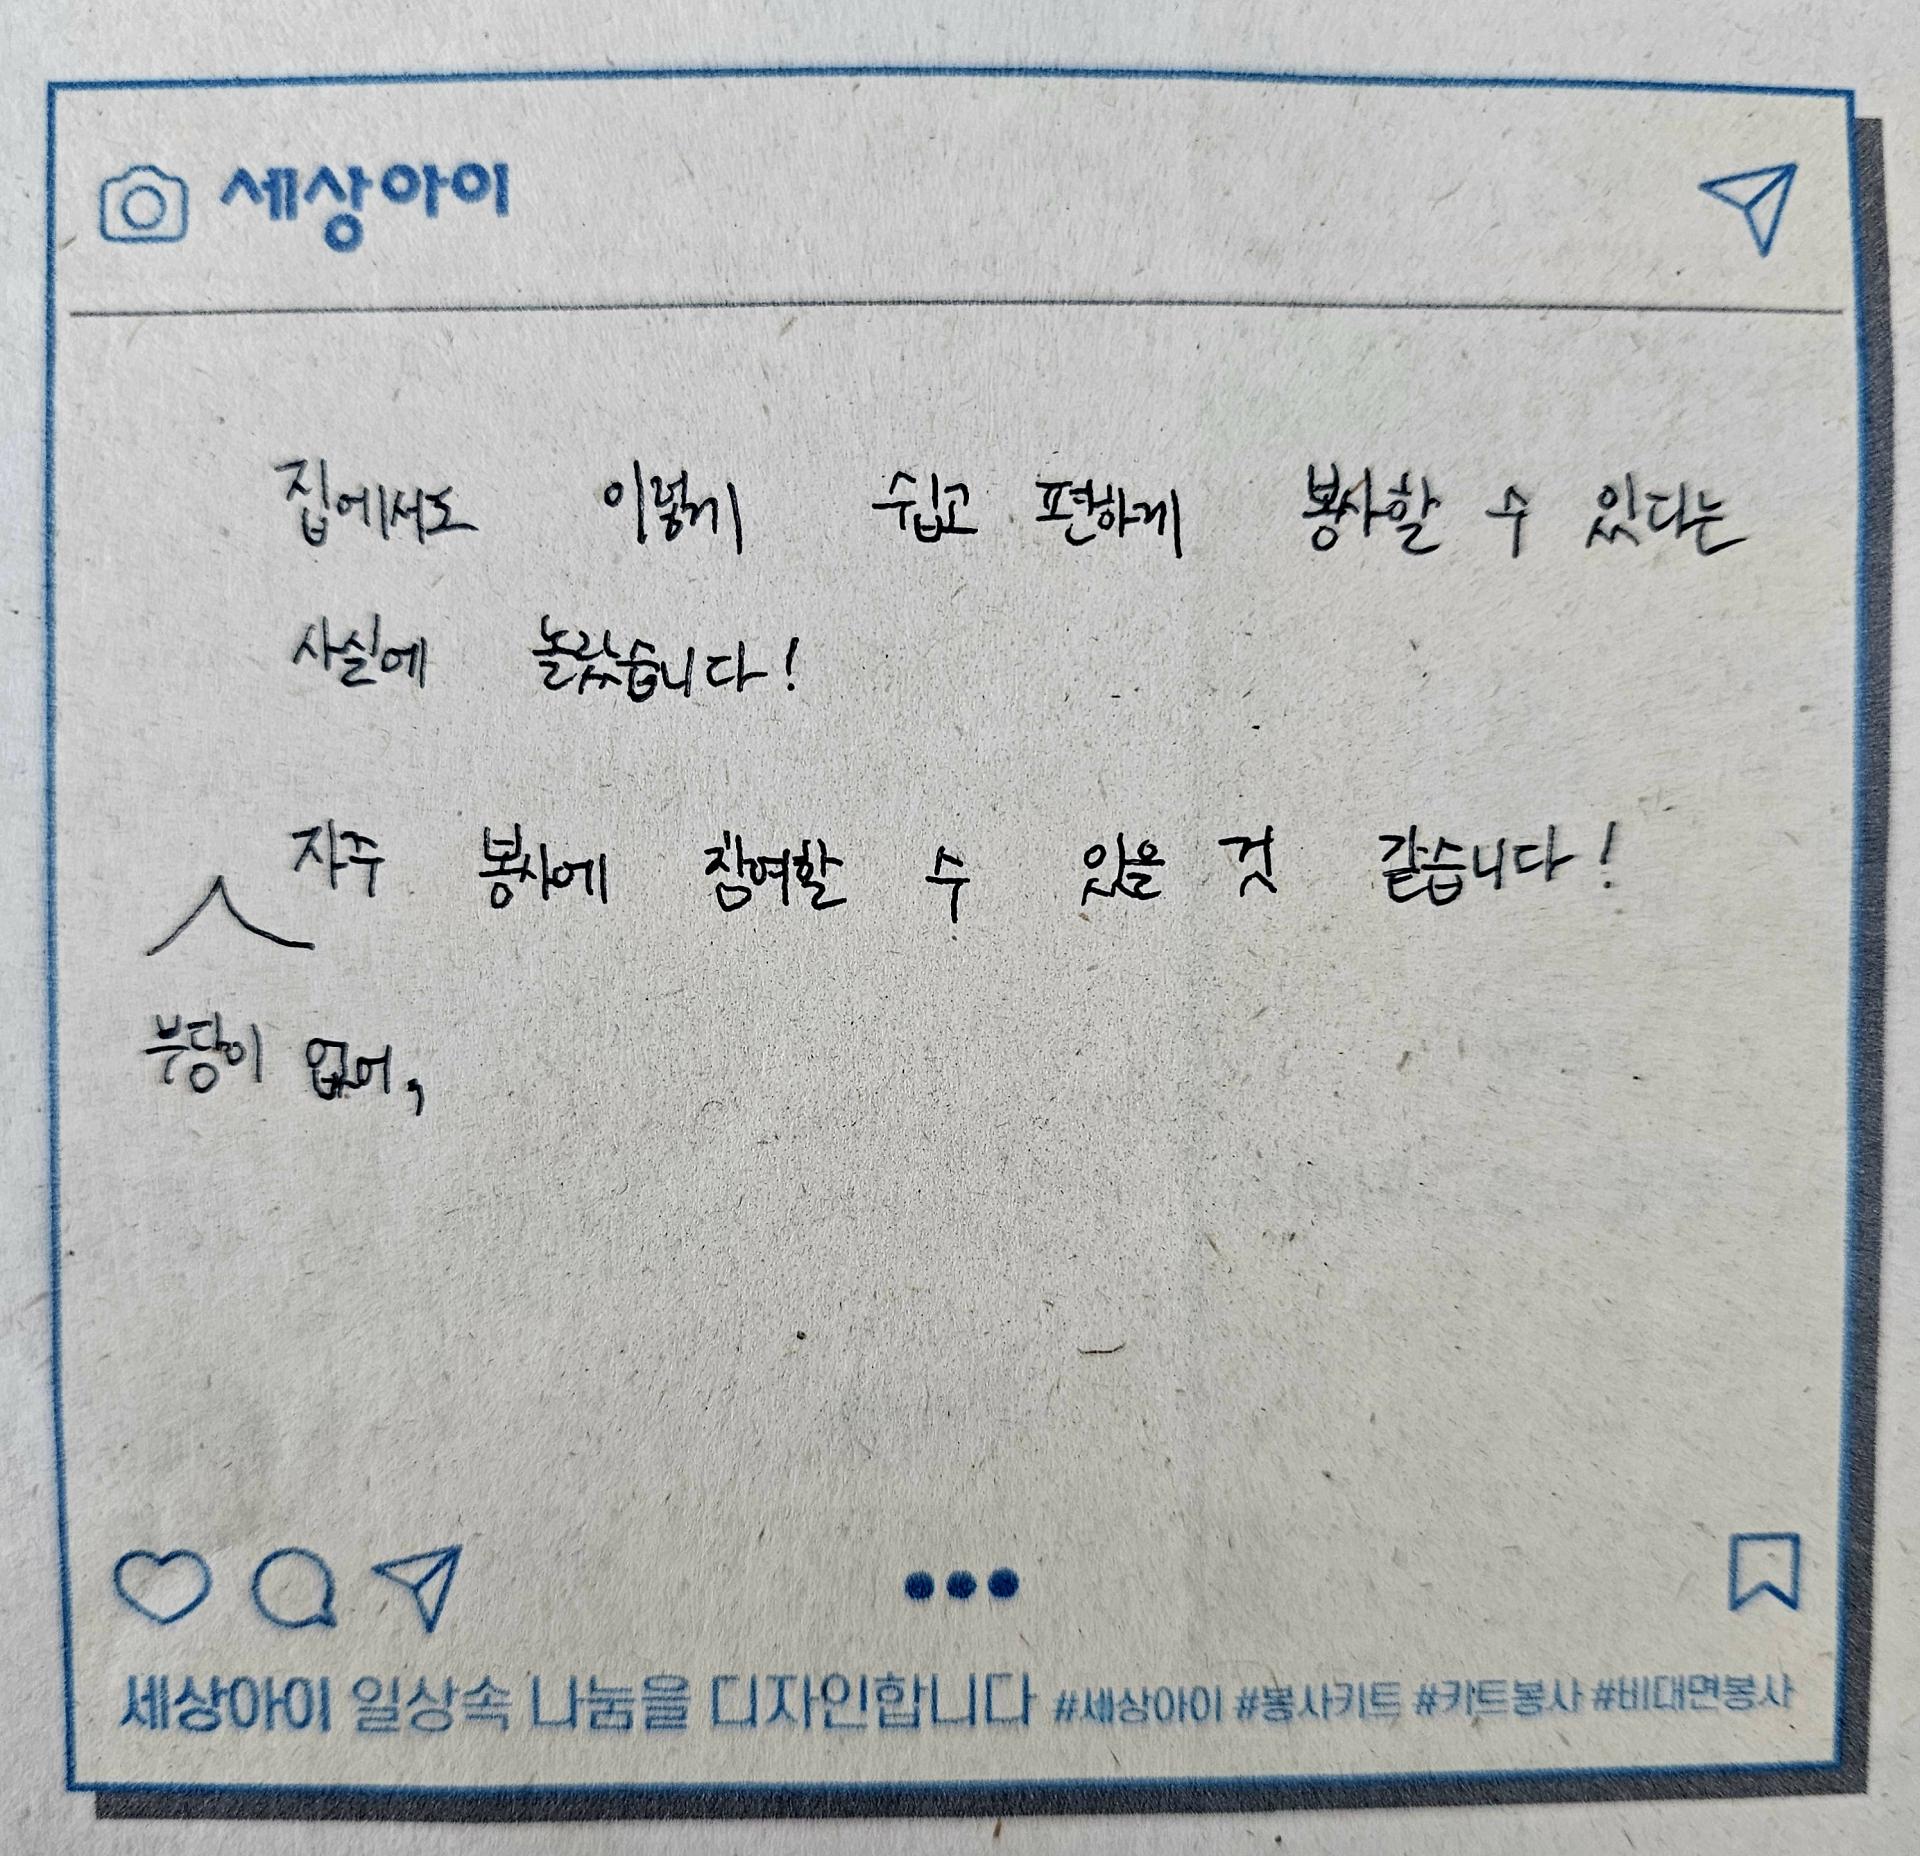 세상아이
집에서도 이렇게 쉽고 편하게 봉사할 수 있다는
사실에 놀랐습니다!
자주 봉사에 참여할 수 있을 것 같습니다!
부담이 없어,
세상아이 일상속 나눔을 디자인합니다 #세상아이 #봉사키트 #키트봉사 #비대면봉사